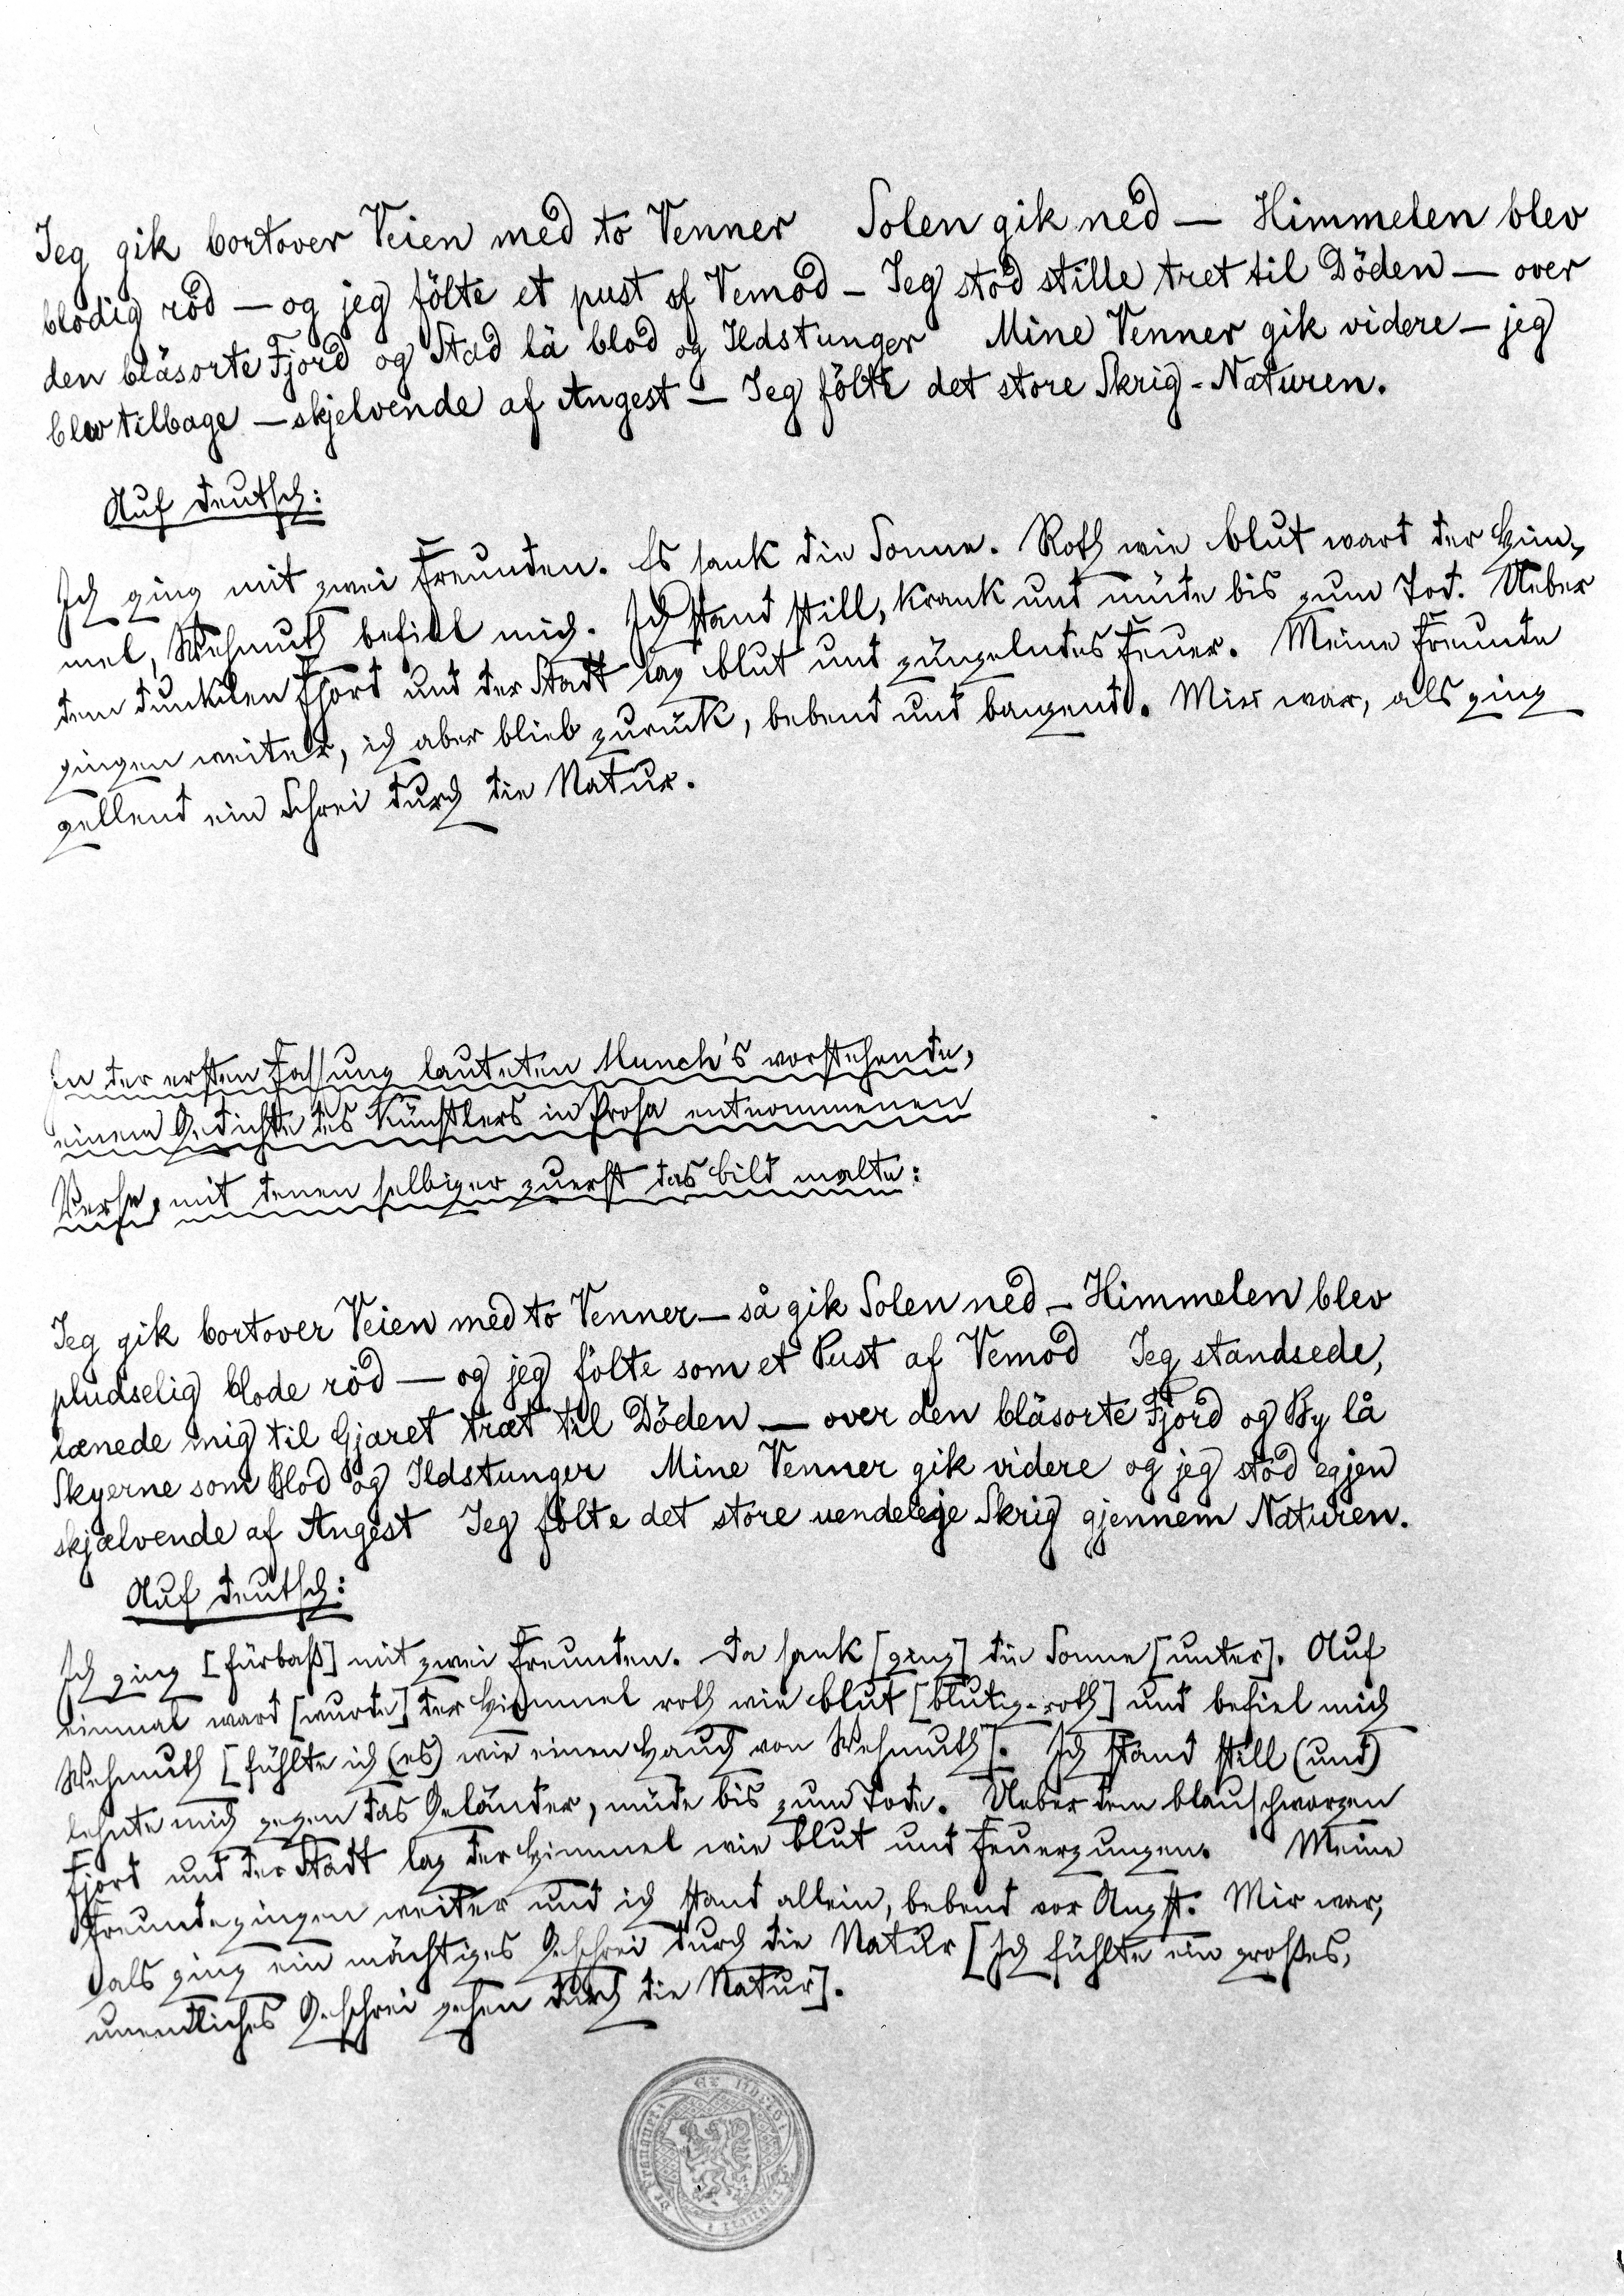 Jeg gik bortover Veien med to Venner Solen gik ned — Himmelen blev
blodig röd — og jeg fölte et pust af Vemod — Jeg stod stille tret til Döden — over
den bläsorte Fjord og Stad lä blod og Ildstunger Mine Venner gik videre — jeg
blev tilbage — skjelvende af Angest — Jeg fölte det store Skrig - Naturen.
Auf deutsch:
Ich ging mit zwei Freunden. Es sank die Sonne. Roth wie Blut ward der Him-
mel, Wehmuth befiel mich. Ich stand still, krank und müde bis zum Tod. Ueber
dem dunklen Fjord und der Stadt lag Blut und züngelndes Feuer. Meine Freunde
gingen weiter, ich aber blieb zurück, bebend und bangend. Mir war, als ging
gellend ein Schrei durch die Natur.
In der ersten Fassung lauteten Munch's vorstehende,
einem Gedichte des Künstlers in Prosa entnommenen
Verse, mit denen selbiger zuerst das Bild malte:
Jeg gik bortover Veien med to Venner — så gik Solen ned — Himmelen blev
pludselig blode röd — og jeg fölte som et Pust af Vemod Jeg standsede,
lænede mig til Gjæret træt til Döden — over den bläsorte Fjord og By lå
Skyerne som Blod og Ildstunger Mine Venner gik videre og jeg stod egjen
skjælvende af Angest Jeg fölte det store uendelige Skrig gjennem Naturen.
Auf deutsch:
Ich ging [fürbaß] mit zwei Freunden. Da sank [ging] die Sonne [unter]. Auf
einmal ward [wurde] der Himmel roth wie Blut [blutig-roth] und befiel mich
Wehmuth [fühlte ich (es) wie einen Hauch von Wehmuth]. Ich stand still (und)
lehnte mich gegen das Geländer, müde bis zum Tode. Ueber dem blauschwarzen
Fjord und der Stadt lag der Himmel wie Blut und Feuerzungen. Meine
Freunde gingen weiter und ich stand allein, bebend vor Angst. Mir war,
als ging ein mächtiges Geschrei durch die Natur [Ich fühlte ein großes,
unendliches Geschrei gehen durch die Natur].